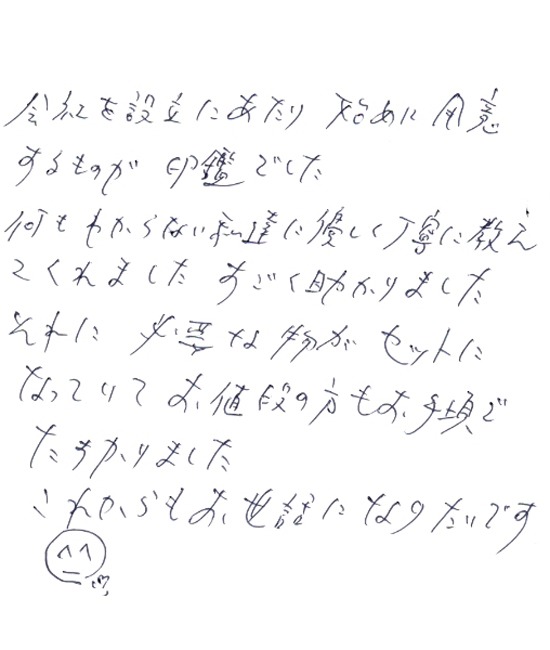 会社を設立にあたり 始めに用意
するものが 印鑑でした
何もわからない私達に優しく丁寧に教え
てくれました すごく助かりました
それに 必要な物が セットに
なっていて お値段の方もお手頃で
たすかりました
これからもお世話になりたいです